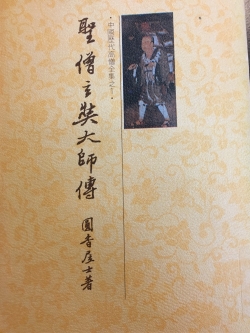 •中國歷代高僧全集之一•
聖僧玄奘大師傳
圓香居士著